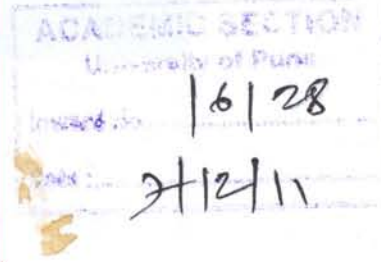 ACADEMIC SECTION
University of Pune
Inward No. 16128
7/12/11